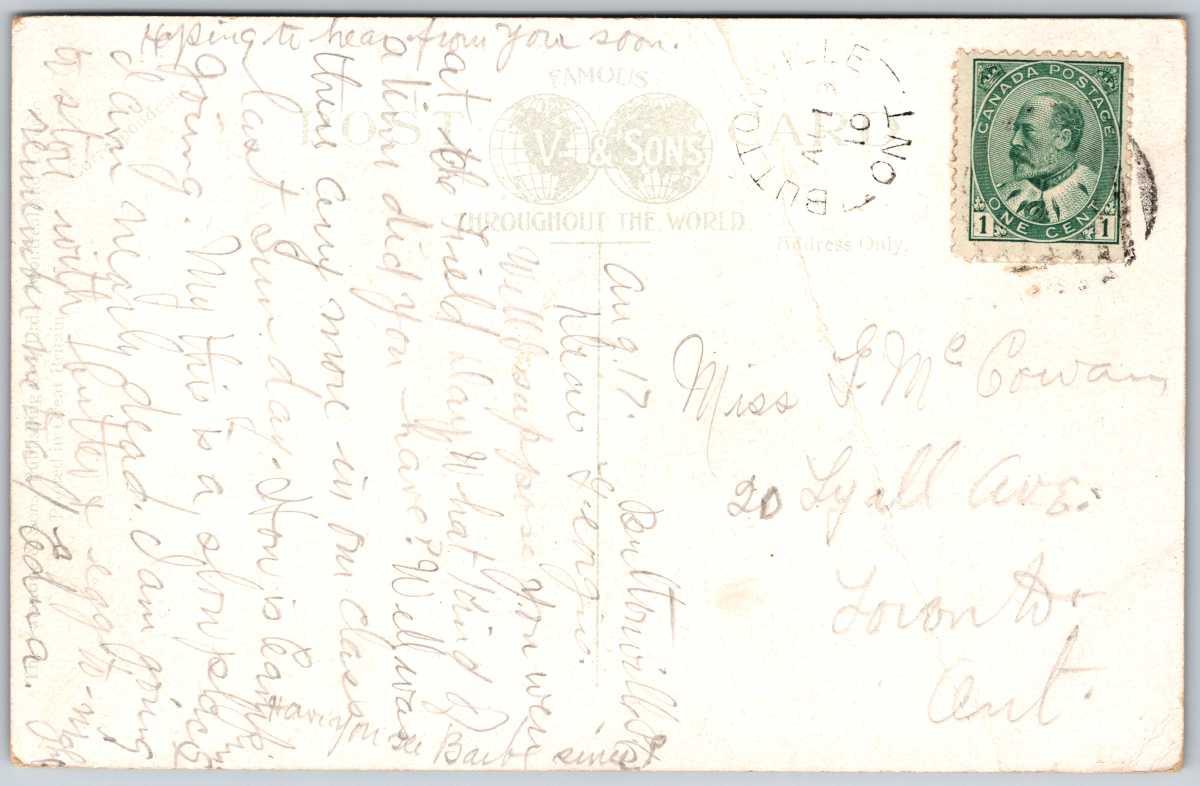 Hoping to hear from you soon.
POST CARD
FAMOUS
V & SONS
THROUGHOUT THE WORLD.
Address Only.
BUTTONVILLE ONT
AU 17
10
CANADA POSTAGE
ONE CENT
1 1
Miss G. McCowan
20 Lyall Ave.
Toronto
Ont.
Buttonville
Aug. 17.
Dear Georgie.
Well I suppose you were
at the Field day. What kind of
a time did you have? Well was
there any more in our class
last Sunday. How is
going. My this is a slow place
I am nearly dead. I am going
to stay with to-night
Edna.
Have you see since